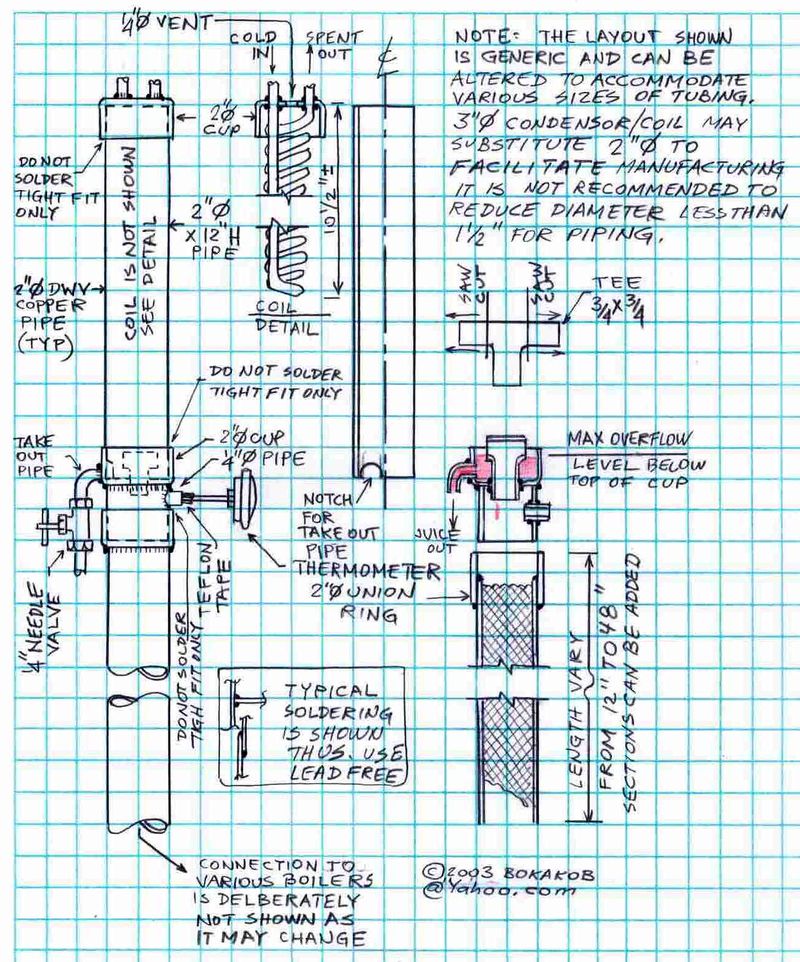 ¼"Ø VENT
COLD
IN
SPENT
OUT
℄
NOTE: THE LAYOUT SHOWN
IS GENERIC AND CAN BE
ALTERED TO ACCOMMODATE
VARIOUS SIZES OF TUBING.
3"Ø CONDENSOR/COIL MAY
SUBSTITUTE 2"Ø TO
FACILITATE MANUFACTURING
IT IS NOT RECOMMENDED TO
REDUCE DIAMETER LESS THAN
1½" FOR PIPING.
2"Ø
CUP
DO NOT
SOLDER
TIGHT FIT
ONLY
COIL IS NOT SHOWN
SEE DETAIL
2"Ø
X 12"H
PIPE
10½"±
2"Ø DWV
COPPER
PIPE
(TYP)
COIL
DETAIL
SAW
CUT
SAW
CUT
TEE
¾ X ¾
DO NOT SOLDER
TIGHT FIT ONLY
TAKE
OUT
PIPE
2"Ø CUP
¼"Ø PIPE
MAX OVERFLOW
LEVEL BELOW
TOP OF CUP
NOTCH
FOR
TAKE OUT
PIPE
JUICE
OUT
THERMOMETER
2"Ø UNION
RING
¼" NEEDLE
VALVE
DO NOT SOLDER
TIGH FIT ONLY
TEFLON
TAPE
LENGTH VARY
FROM 12" TO 48"
SECTIONS CAN BE ADDED
TYPICAL
SOLDERING
IS SHOWN
THUS. USE
LEAD FREE
CONNECTION TO
VARIOUS BOILERS
IS DELBERATELY
NOT SHOWN AS
IT MAY CHANGE
©2003 BOKAKOB
@Yahoo.com